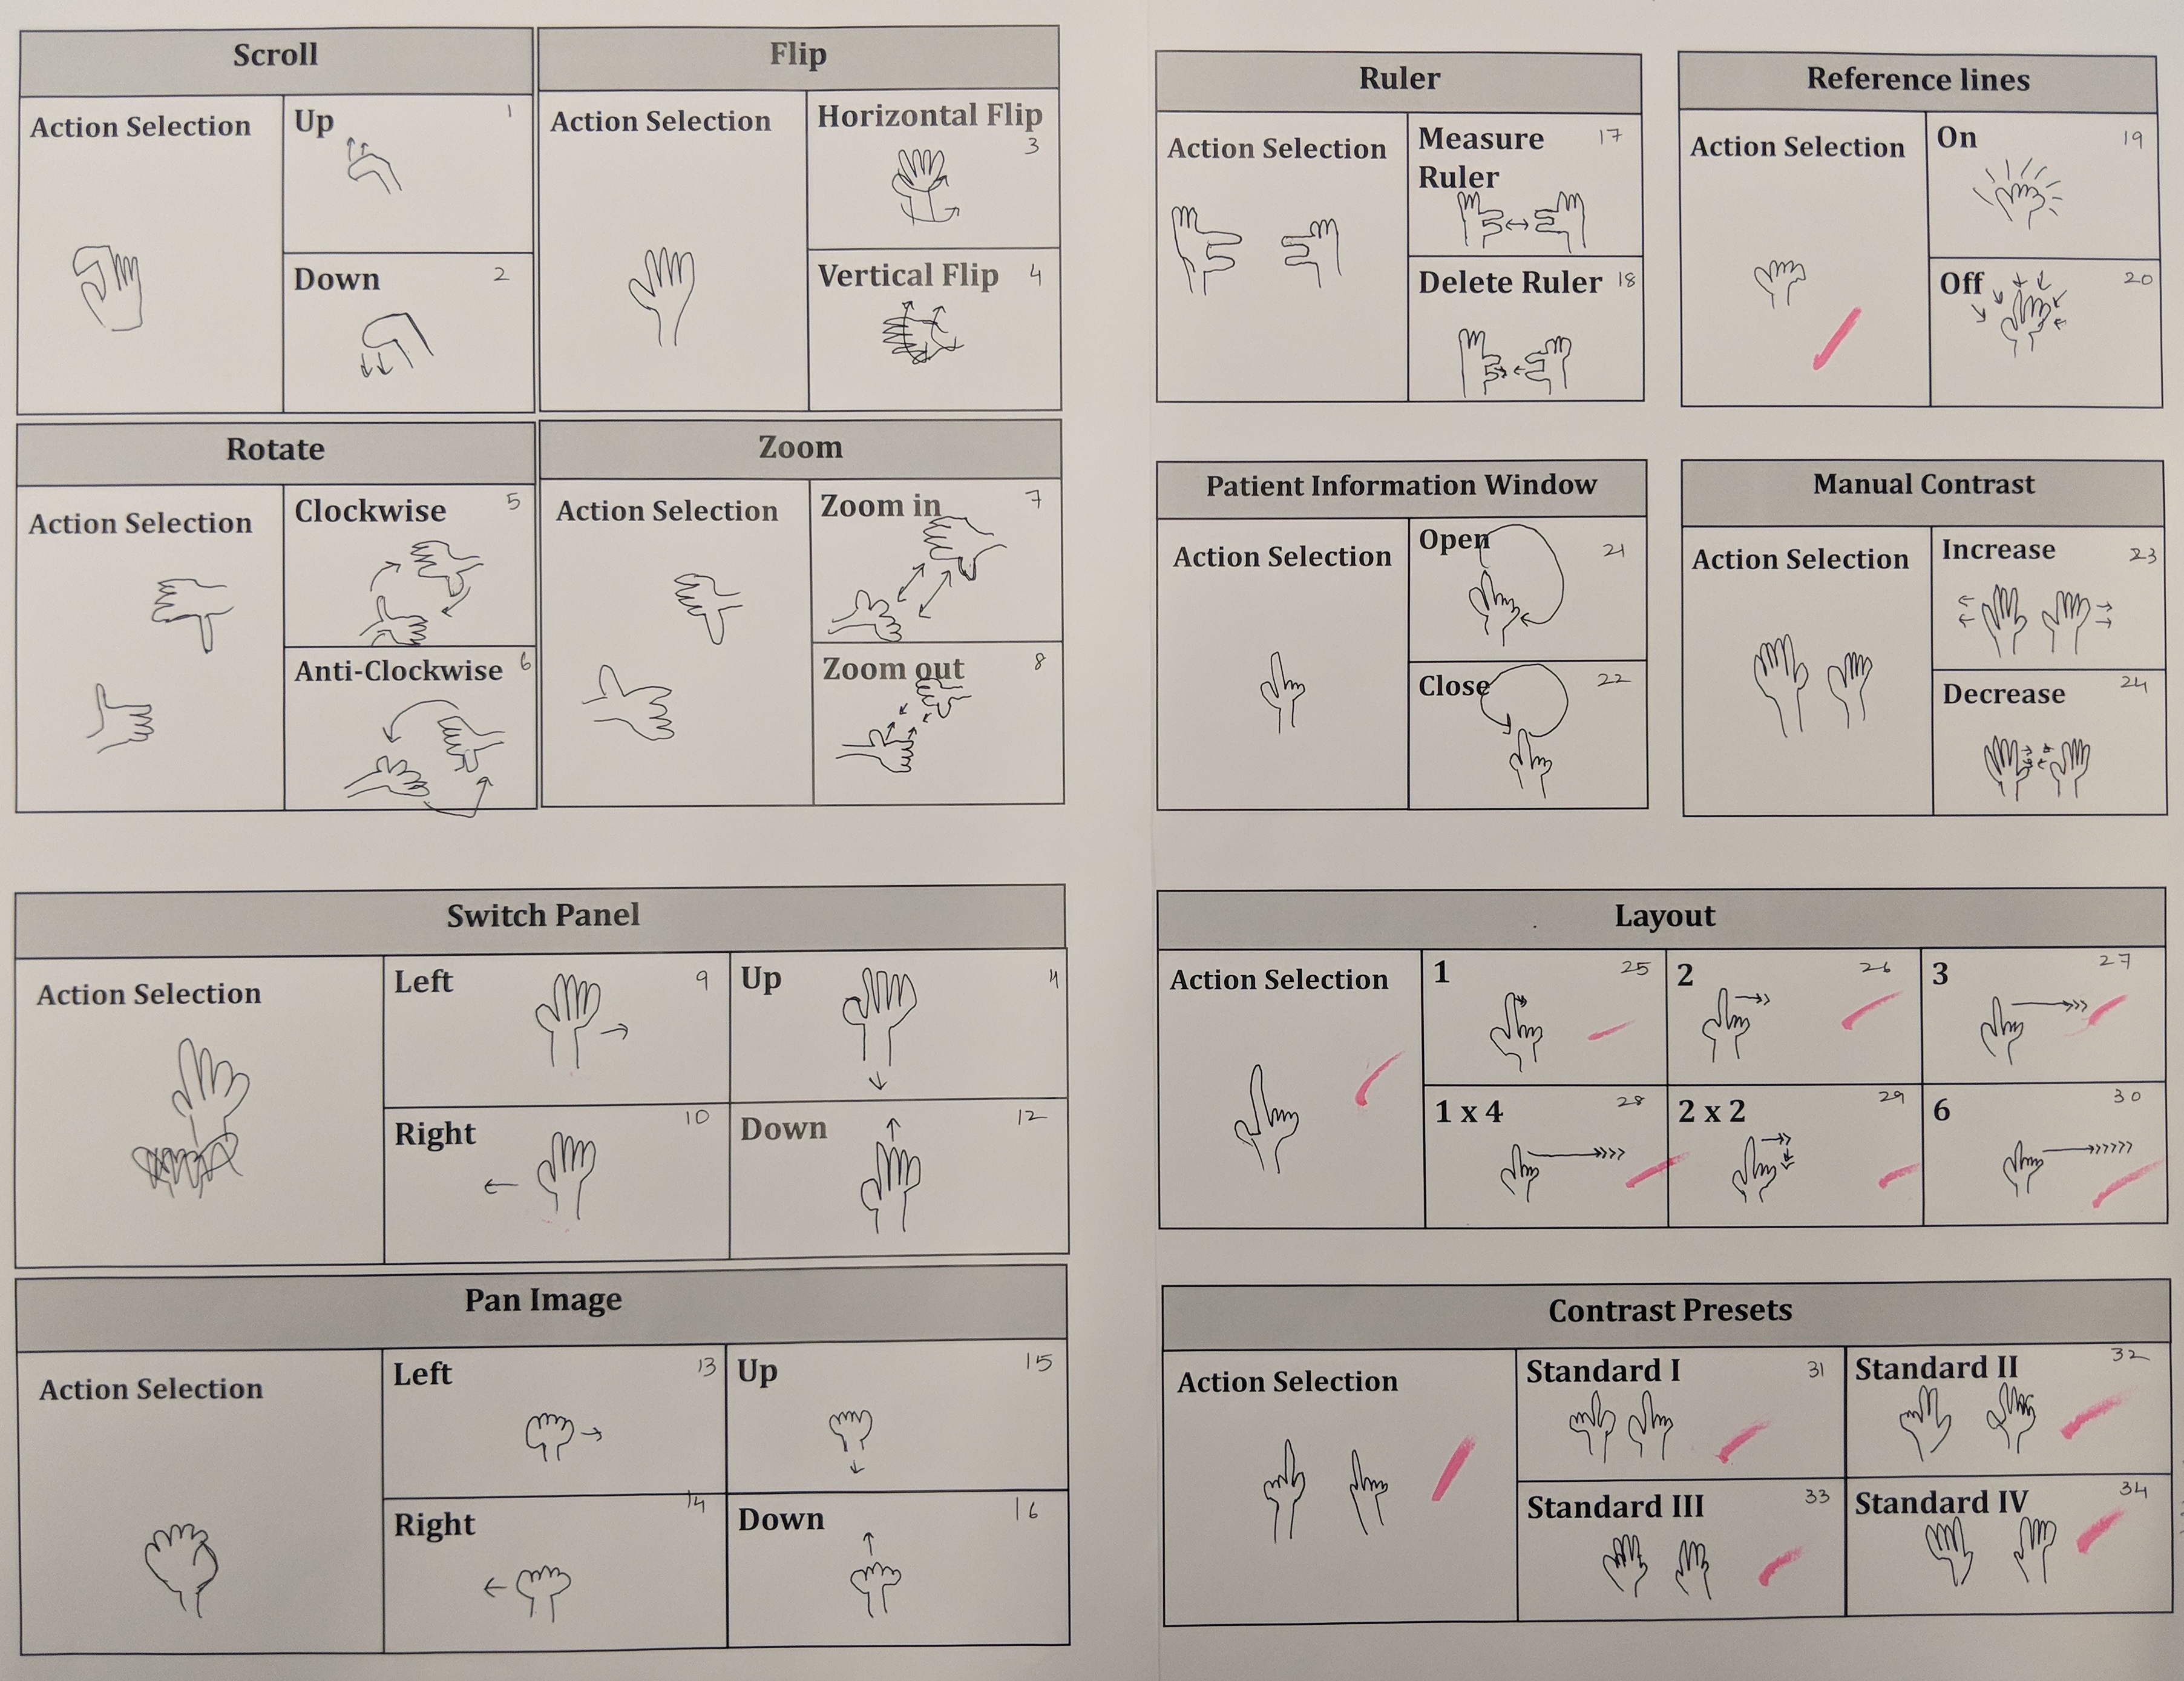 Scroll
Action Selection
Up
1
Down
2
Flip
Action Selection
Horizontal Flip
3
Vertical Flip
4
Rotate
Action Selection
Clockwise
5
Anti-Clockwise
6
Zoom
Action Selection
Zoom in
7
Zoom out
8
Switch Panel
Action Selection
Left
9
Up
Right
10
Down
12
Pan Image
Action Selection
Left
13
Up
15
Right
14
Down
16
Ruler
Action Selection
Measure
17
Ruler
Delete Ruler
18
Reference lines
Action Selection
On
19
Off
20
Patient Information Window
Action Selection
Open
21
Close
22
Manual Contrast
Action Selection
Increase
23
Decrease
24
Layout
Action Selection
1
25
2
26
3
27
1 x 4
28
2 x 2
29
6
30
Contrast Presets
Action Selection
Standard I
31
Standard II
32
Standard III
33
Standard IV
34